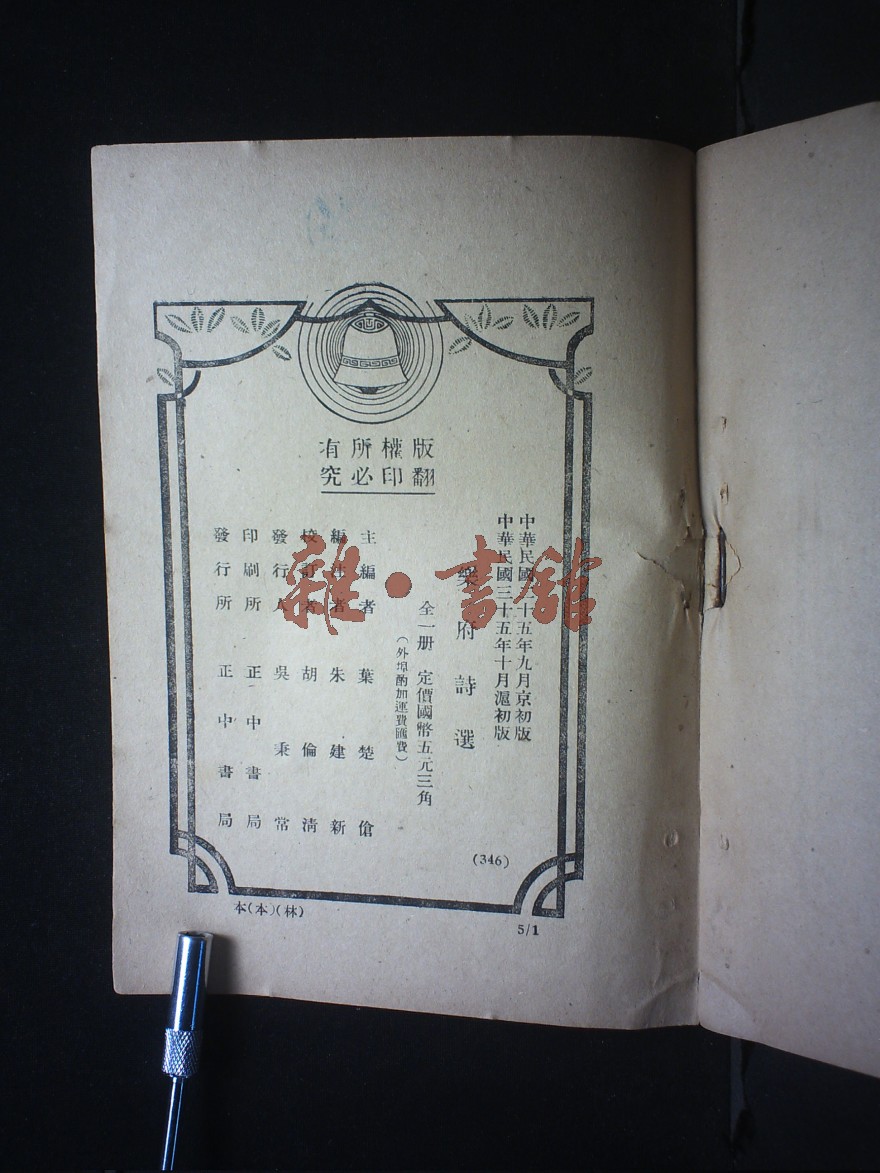 版權所有
翻印必究
中華民國二十五年九月京初版
中華民國三十五年十月滬初版
樂府詩選
全一册 定價國幣五元三角
(外埠酌加運費匯費)
主編者 葉楚傖
編注者 朱建新
校訂者 胡倫清
發行人 吳秉常
印刷所 正中書局
發行所 正中書局
(346)
本(本)(林)
5/1
雜·書館